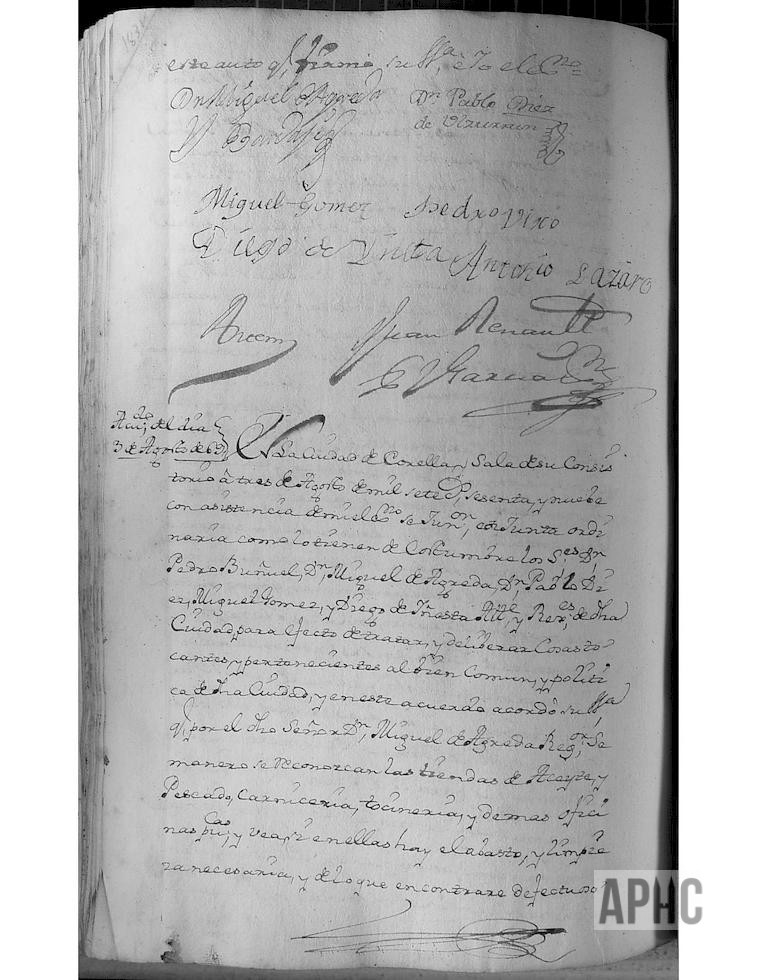 este auto q, firmó su Ssª, e Yo el Essno
Dn Miguel Agreda Dn Pablo Diez
y de Ulzurrun
Miguel Gomez Pedro Vixo
Diego de Antonio Lazaro
Juan Renault
Garcia
Acu,do del dia
3 de Agosto de 69
En La Ciudad de Corella, y Sala de su Consis
torio à tres de Agosto de mil sete,os sesenta, y nuebe
con asistencia de mi el Essno se Jun,on en Junta ordi
naria como lo tienen de Costumbre los S,es Dn
Pedro Buñuel, Dn, Miguel de Agreda, Dn Pablo Di
ez, Miguel Gomez, y Diego de Alle, y Rex,es de dha
Ciudad, para efecto de tratar, y deliberar Cosas to
cantes, y pertenecientes al bien Comun, y politi
ca de dha Ciudad, y en este acuerdo acordó su Ssª,
q, por el dho Señor Dn, Miguel de Agreda Reg,or Se
manero se Reconozcan las tiendas de Aceyte, y
Pescado, Carniceria, tocineria, y demas ofici
nas pu,cas y vea, si en ellas hay el abasto, y limpie
za necesaria, y de lo que encontrare defectuoso
APHC